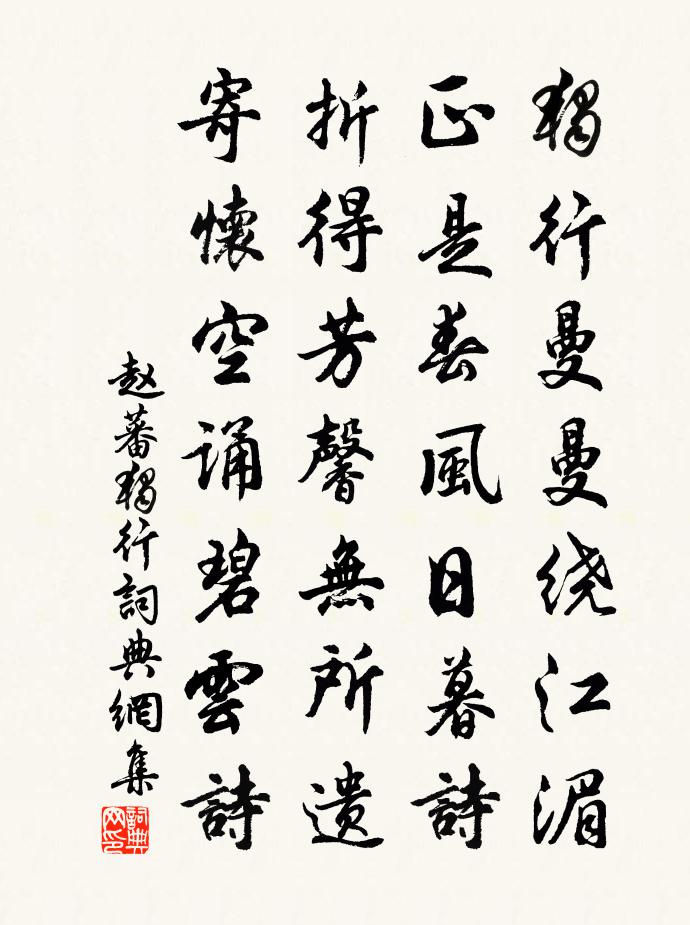 獨行曼曼绕江湄
正是春風日暮詩
折得芳馨無所遗
寄懷空诵碧雲詩
赵蕃獨行詞典網集
詞典网印